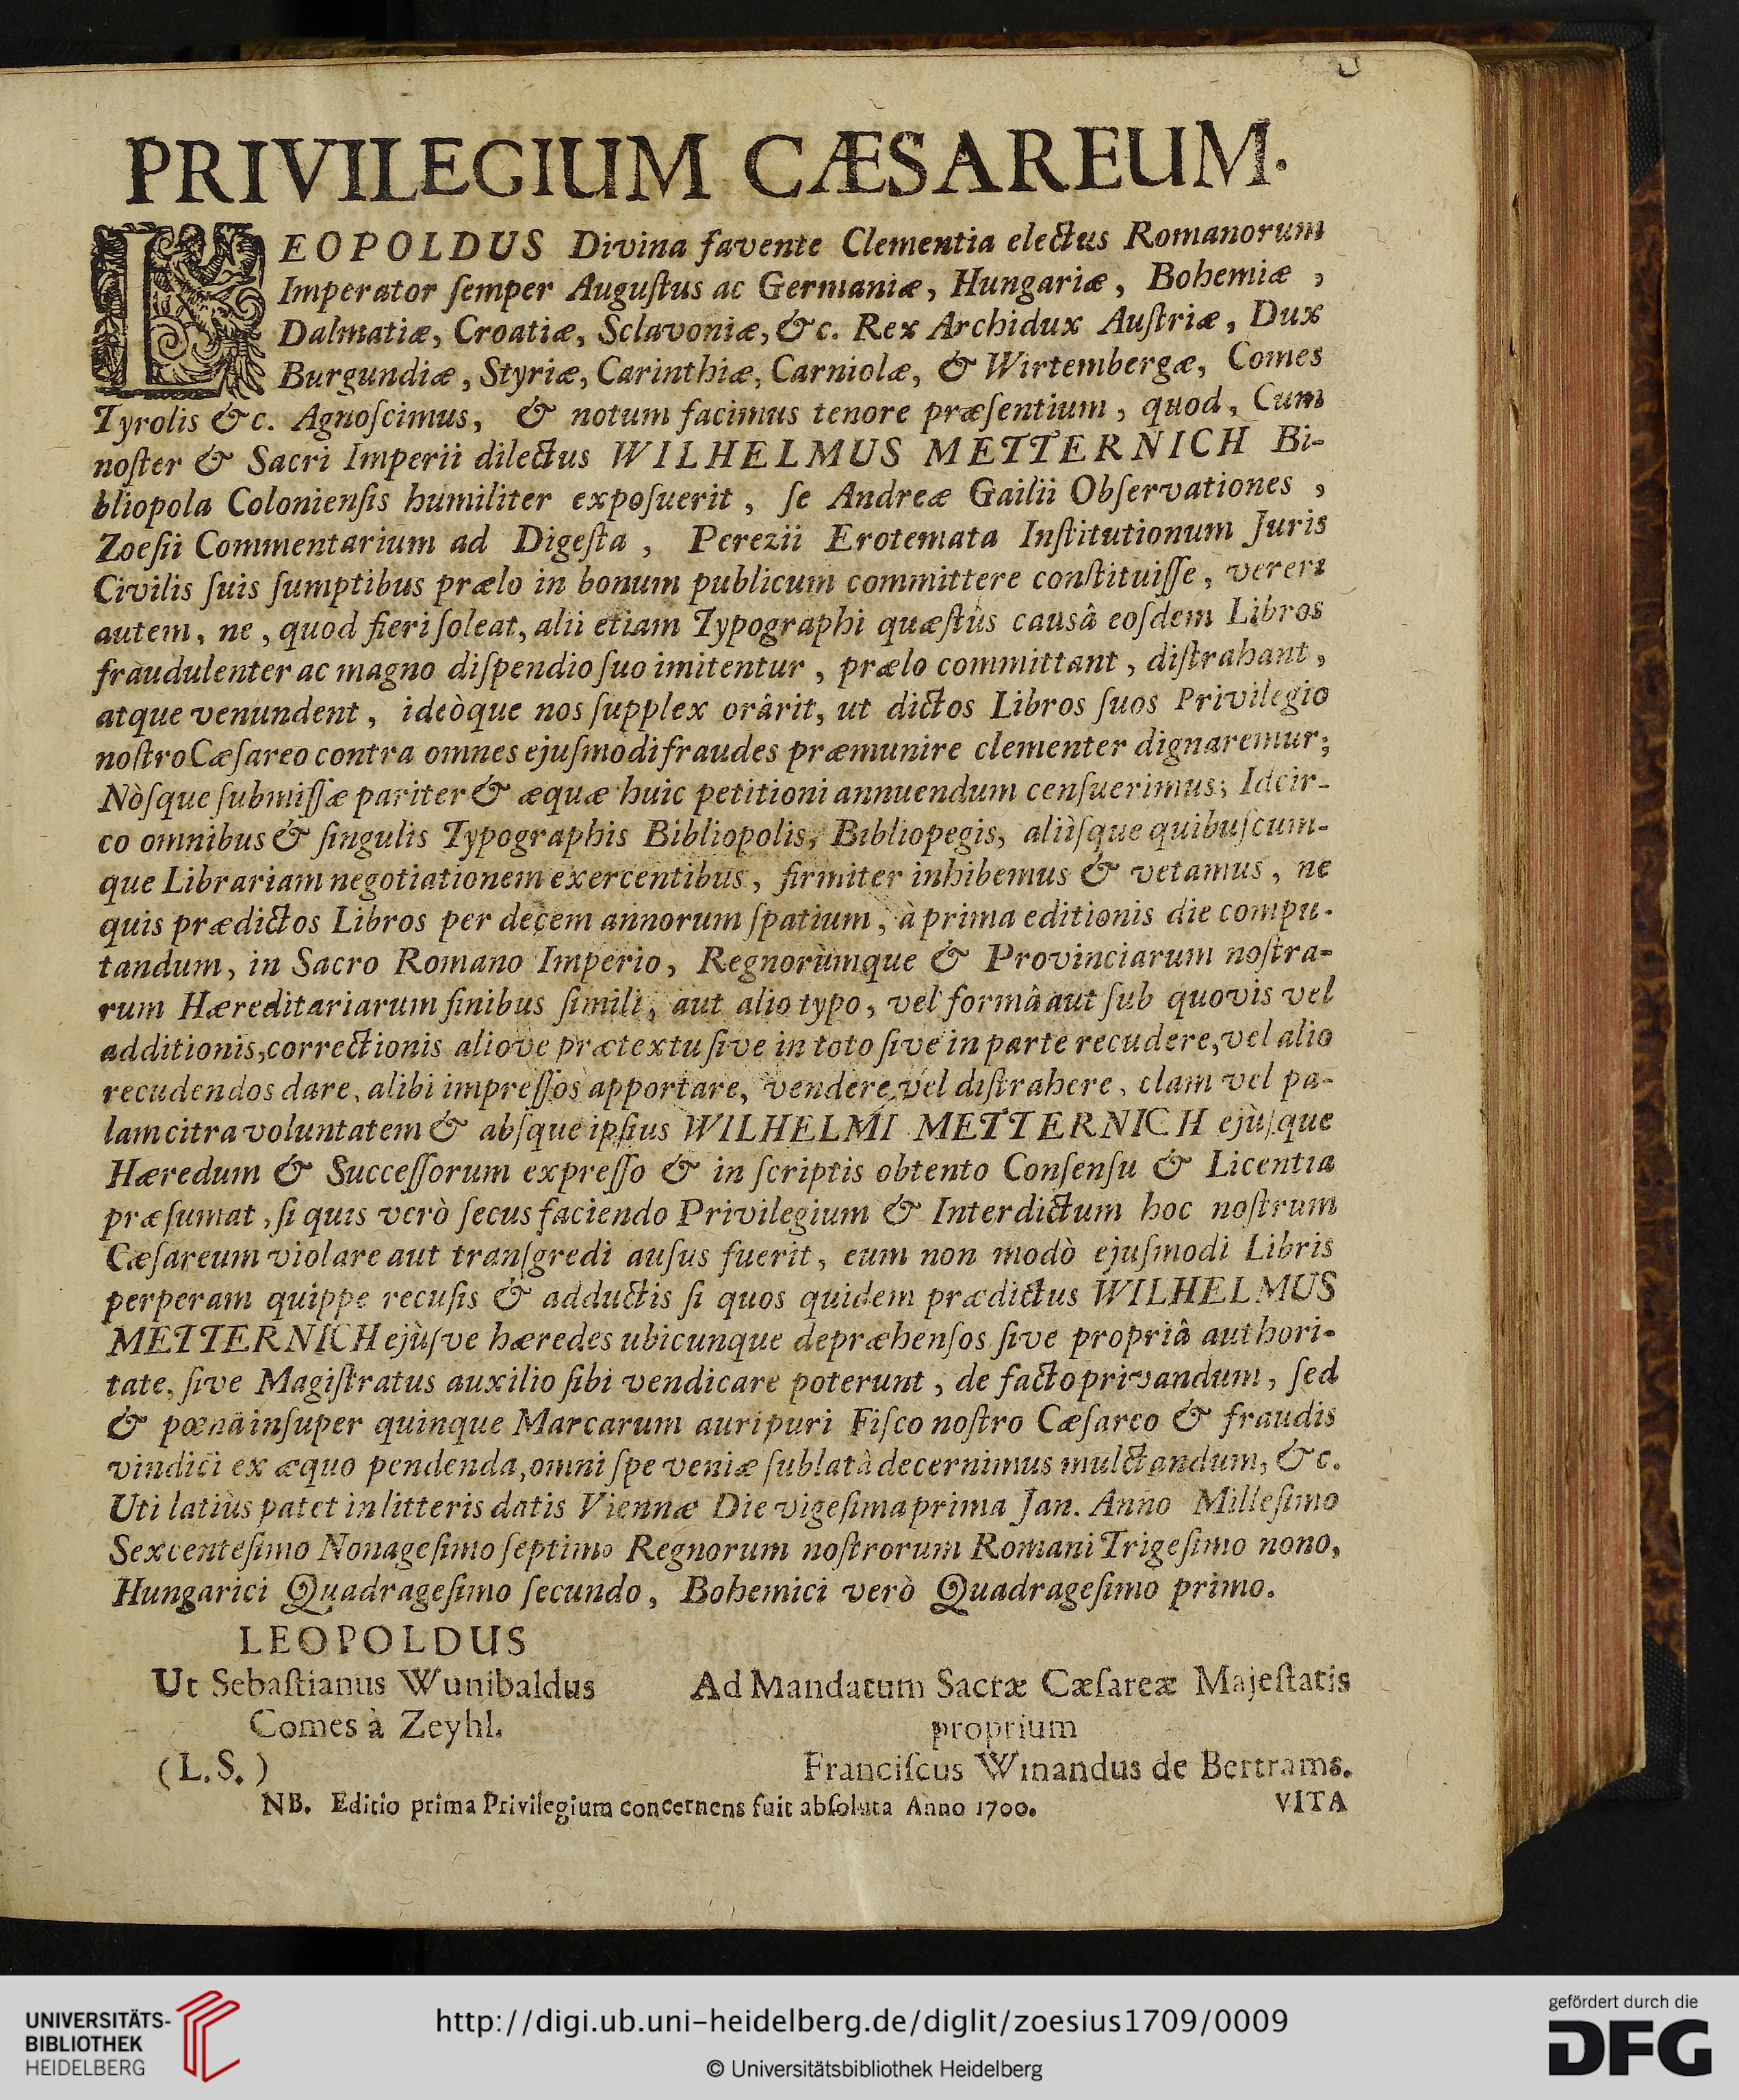 PRIVILEGIUM CÆSAREUM.
LEOPOLDUS Divina favente Clementia electus Romanorum
Imperator ſemper Auguſtus ac Germaniæ, Hungariæ, Bohemiæ,
Dalmatiæ, Croatiæ, Sclavoniæ, &c. Rex Archidux Auſtriæ, Dux
Burgundiæ, Styriæ, Carinthiæ, Carniolæ, & Wirtembergæ, Comes
Tyrolis &c. Agnoſcimus, & notum facimus tenore præſentium, quod, Cum
noſter & Sacri Imperii dilectus WILHELMUS METTERNICH Bi-
bliopola Colonienſis humiliter expoſuerit, ſe Andreæ Gailii Obſervationes,
Zoeſii Commentarium ad Digeſta, Perezii Erotemata Inſtitutionum Juris
Civilis ſuis ſumptibus prælo in bonum publicum committere conſtituiſſe, vereri
autem, ne, quod fieri ſoleat, alii etiam Typographi quæſtûs causâ eoſdem Libros
fraudulenter ac magno diſpendio ſuo imitentur, prælo committant, diſtrahant,
atque venundent, ideòque nos ſupplex orârit, ut dictos Libros ſuos Privilegio
noſtro Cæſareo contra omnes ejuſmodi fraudes præmunire clementer dignaremur;
Nòſque ſubmiſſæ pariter & æquæ huic petitioni annuendum cenſuerimus; Idcir-
co omnibus & ſingulis Typographis Bibliopolis, Bibliopegis, aliìſque quibuſcum-
que Librariam negotiationem exercentibus, firmiter inhibemus & vetamus, ne
quis prædictos Libros per decem annorum ſpatium, à prima editionis die compu-
tandum, in Sacro Romano Imperio, Regnorùmque & Provinciarum noſtra-
rum Hæreditariarum finibus ſimili, aut alio typo, vel formâ aut ſub quovis vel
additionis, correctionis aliove prætextu ſive in toto ſive in parte recudere, vel alio
recudendos dare, alibi impreſſos apportare, vendere vel diſtrahere, clam vel pa-
lam citra voluntatem & abſque ipſius WILHELMI METTERNICH ejùſque
Hæredum & Succeſſorum expreſſo & in ſcriptis obtento Conſenſu & Licentia
præſumat, ſi quis verò ſecus faciendo Privilegium & Interdictum hoc noſtrum
Cæſareum violare aut tranſgredi auſus fuerit, eum non modò ejuſmodi Libris
perperam quippe recuſis & adductis ſi quos quidem prædictus WILHELMUS
METTERNICH ejùſve hæredes ubicunque depræhenſos ſive propriâ authori-
tate, ſive Magiſtratus auxilio ſibi vendicare poterunt, de facto privandum, ſed
& pœnâ inſuper quinque Marcarum auri puri Fiſco noſtro Cæſareo & fraudis
vindici ex æquo pendenda, omni ſpe veniæ ſublatâ decernimus mulctandum, &c.
Uti latiùs patet in litteris datis Viennæ Die vigeſima prima Jan. Anno Milleſimo
Sexcenteſimo Nonageſimo ſeptimo Regnorum noſtrorum Romani Trigeſimo nono,
Hungarici Quadrageſimo ſecundo, Bohemici verò Quadrageſimo primo.
LEOPOLDUS
Ut Sebaſtianus Wunibaldus
Comes à Zeyhl.
(L.S.)
Ad Mandatum Sacræ Cæſareæ Majeſtatis
proprium
Franciſcus Winandus de Bertrams.
NB. Editio prima Privilegium concernens fuit abſoluta Anno 1700.
VITA
UNIVERSITÄTS-
BIBLIOTHEK
HEIDELBERG
http://digi.ub.uni-heidelberg.de/diglit/zoesius1709/0009
© Universitätsbibliothek Heidelberg
gefördert durch die
DFG